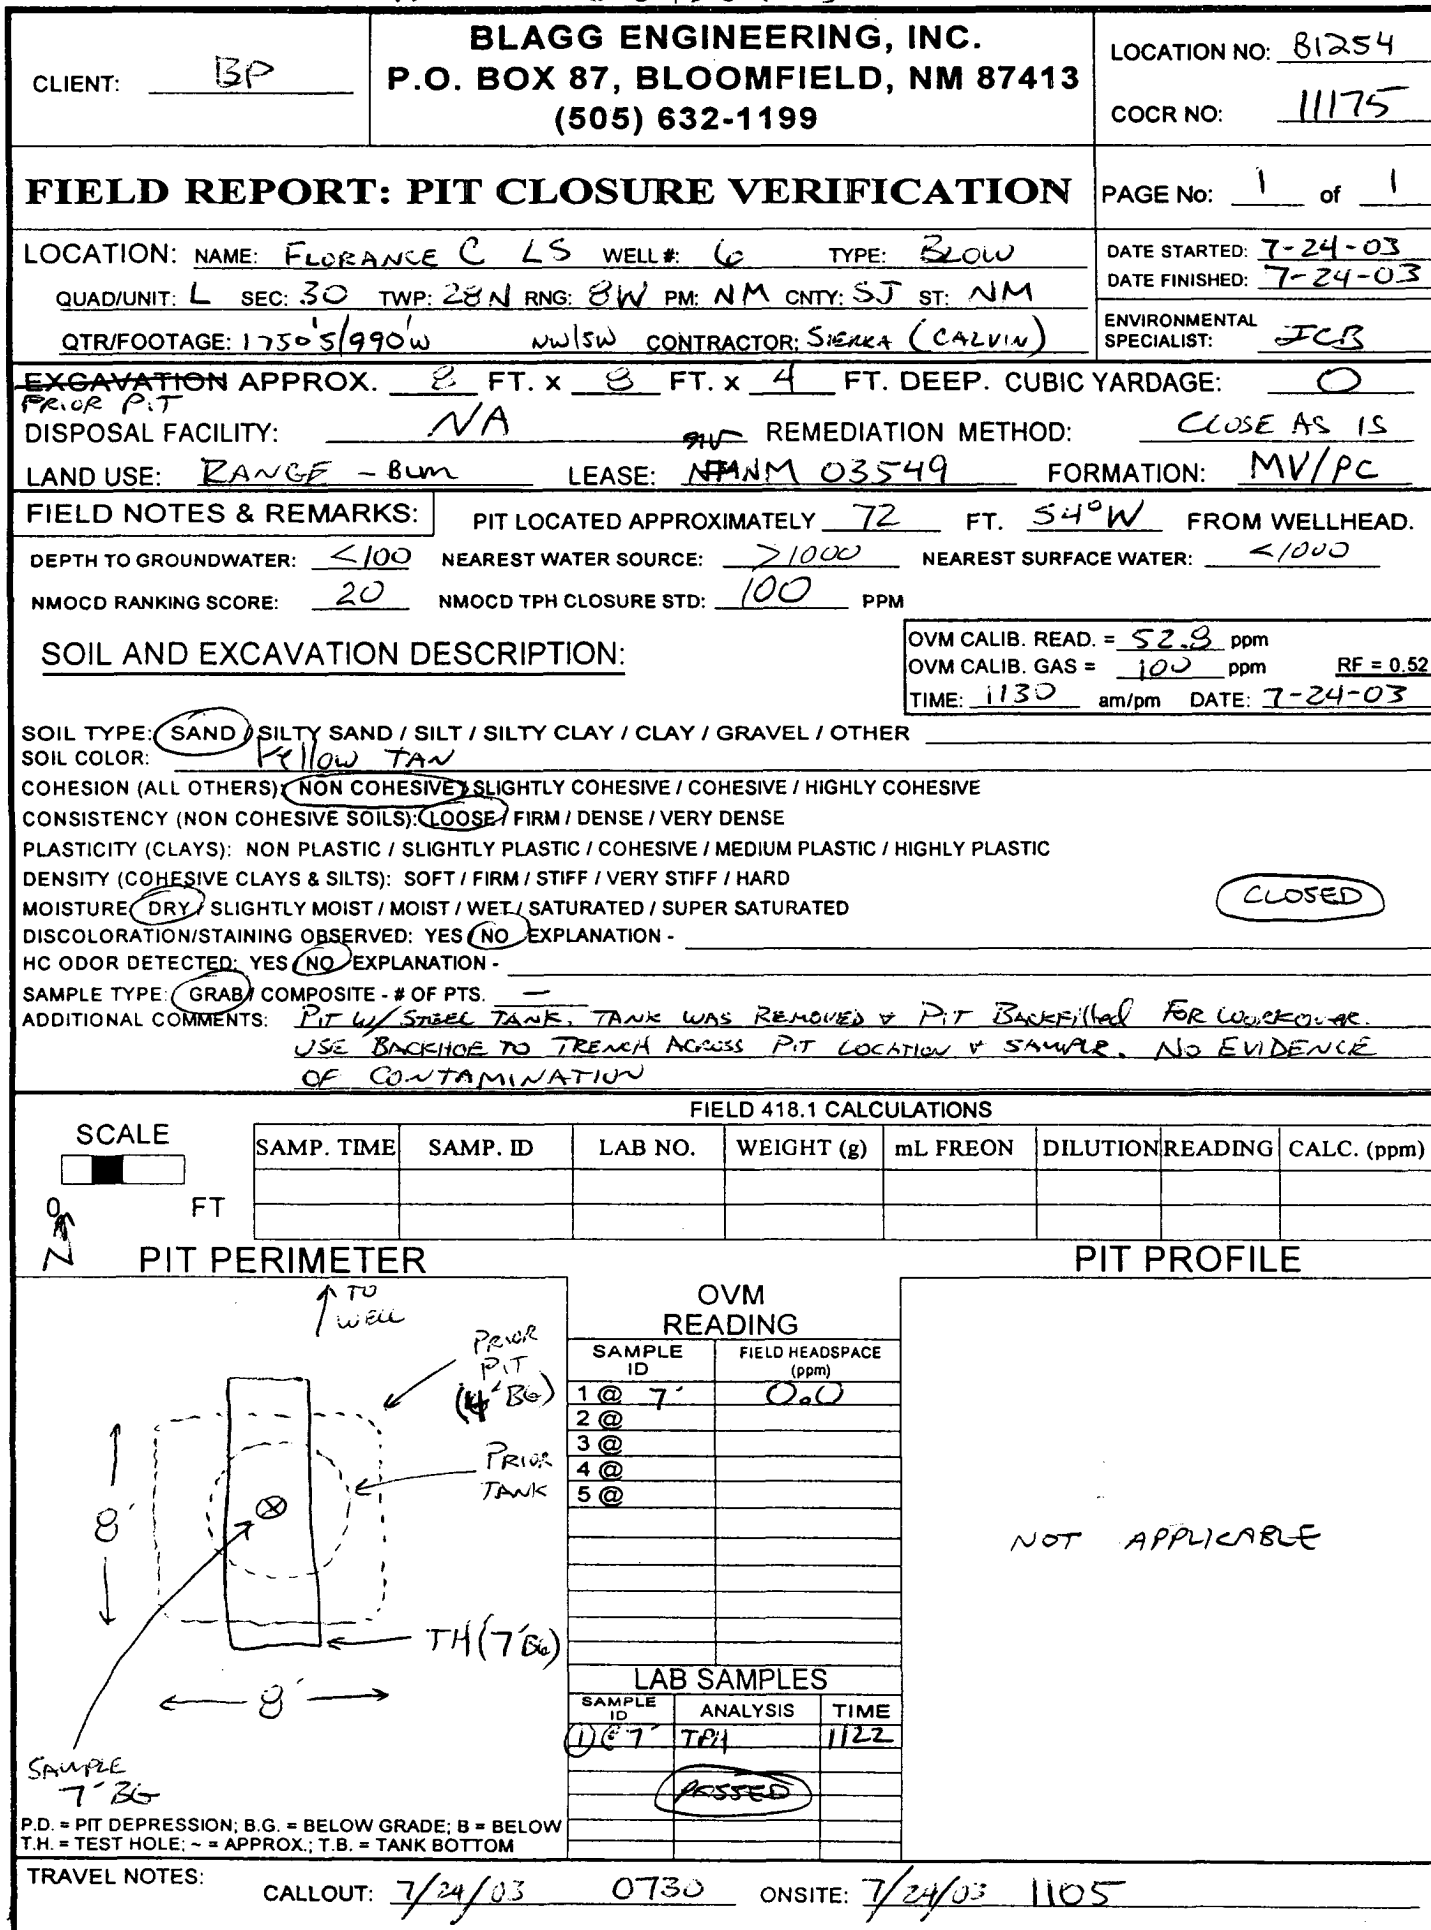 BLAGG ENGINEERING, INC.
P.O. BOX 87, BLOOMFIELD, NM 87413
(505) 632-1199
CLIENT: BP
LOCATION NO: B1254
COCR NO: 11175
FIELD REPORT: PIT CLOSURE VERIFICATION
PAGE No: 1 of 1
LOCATION: NAME: FLORANCE C LS WELL #: 6 TYPE: BLOW
DATE STARTED: 7-24-03
DATE FINISHED: 7-24-03
QUAD/UNIT: L SEC: 30 TWP: 28N RNG: 8W PM: NM CNTY: SJ ST: NM
QTR/FOOTAGE: 1750'S/990'W NW/SW CONTRACTOR: SIERRA (CALVIN)
ENVIRONMENTAL
SPECIALIST: JCB
EXCAVATION APPROX. 8 FT. x 8 FT. x 4 FT. DEEP. CUBIC YARDAGE: 0
PRIOR PIT
DISPOSAL FACILITY: NA REMEDIATION METHOD: CLOSE AS IS
LAND USE: RANGE - BLM LEASE: NM 03549 FORMATION: MV/PC
FIELD NOTES & REMARKS: PIT LOCATED APPROXIMATELY 72 FT. S4°W FROM WELLHEAD.
DEPTH TO GROUNDWATER: <100 NEAREST WATER SOURCE: >1000 NEAREST SURFACE WATER: <1000
NMOCD RANKING SCORE: 20 NMOCD TPH CLOSURE STD: 100 PPM
SOIL AND EXCAVATION DESCRIPTION:
OVM CALIB. READ. = 52.8 ppm
OVM CALIB. GAS = 100 ppm RF = 0.52
TIME: 1130 am/pm DATE: 7-24-03
SOIL TYPE: SAND / SILTY SAND / SILT / SILTY CLAY / CLAY / GRAVEL / OTHER
SOIL COLOR: Yellow TAN
COHESION (ALL OTHERS): NON COHESIVE / SLIGHTLY COHESIVE / COHESIVE / HIGHLY COHESIVE
CONSISTENCY (NON COHESIVE SOILS): LOOSE / FIRM / DENSE / VERY DENSE
PLASTICITY (CLAYS): NON PLASTIC / SLIGHTLY PLASTIC / COHESIVE / MEDIUM PLASTIC / HIGHLY PLASTIC
DENSITY (COHESIVE CLAYS & SILTS): SOFT / FIRM / STIFF / VERY STIFF / HARD
MOISTURE: DRY / SLIGHTLY MOIST / MOIST / WET / SATURATED / SUPER SATURATED
CLOSED
DISCOLORATION/STAINING OBSERVED: YES / NO EXPLANATION -
HC ODOR DETECTED: YES / NO EXPLANATION -
SAMPLE TYPE: GRAB / COMPOSITE - # OF PTS. —
ADDITIONAL COMMENTS: PIT W/ STEEL TANK. TANK WAS REMOVED & PIT BACKFilled FOR WORKOVER.
USE BACKHOE TO TRENCH ACROSS PIT LOCATION & SAMPLE. NO EVIDENCE
OF CONTAMINATION
FIELD 418.1 CALCULATIONS
SCALE
0 FT
N
SAMP. TIME SAMP. ID LAB NO. WEIGHT (g) mL FREON DILUTION READING CALC. (ppm)
PIT PERIMETER
TO
WELL
PRIOR
PIT
(4' BG)
PRIOR
TANK
8'
TH (7' BG)
8'
SAMPLE
7' BG
P.D. = PIT DEPRESSION; B.G. = BELOW GRADE; B = BELOW
T.H. = TEST HOLE; ~ = APPROX.; T.B. = TANK BOTTOM
OVM
READING
SAMPLE
ID
FIELD HEADSPACE
(ppm)
1 @ 7' 0.0
2 @
3 @
4 @
5 @
LAB SAMPLES
SAMPLE
ID
ANALYSIS TIME
1 @ 7' TPH 1122
PASSED
PIT PROFILE
NOT APPLICABLE
TRAVEL NOTES:
CALLOUT: 7/24/03 0730 ONSITE: 7/24/03 1105